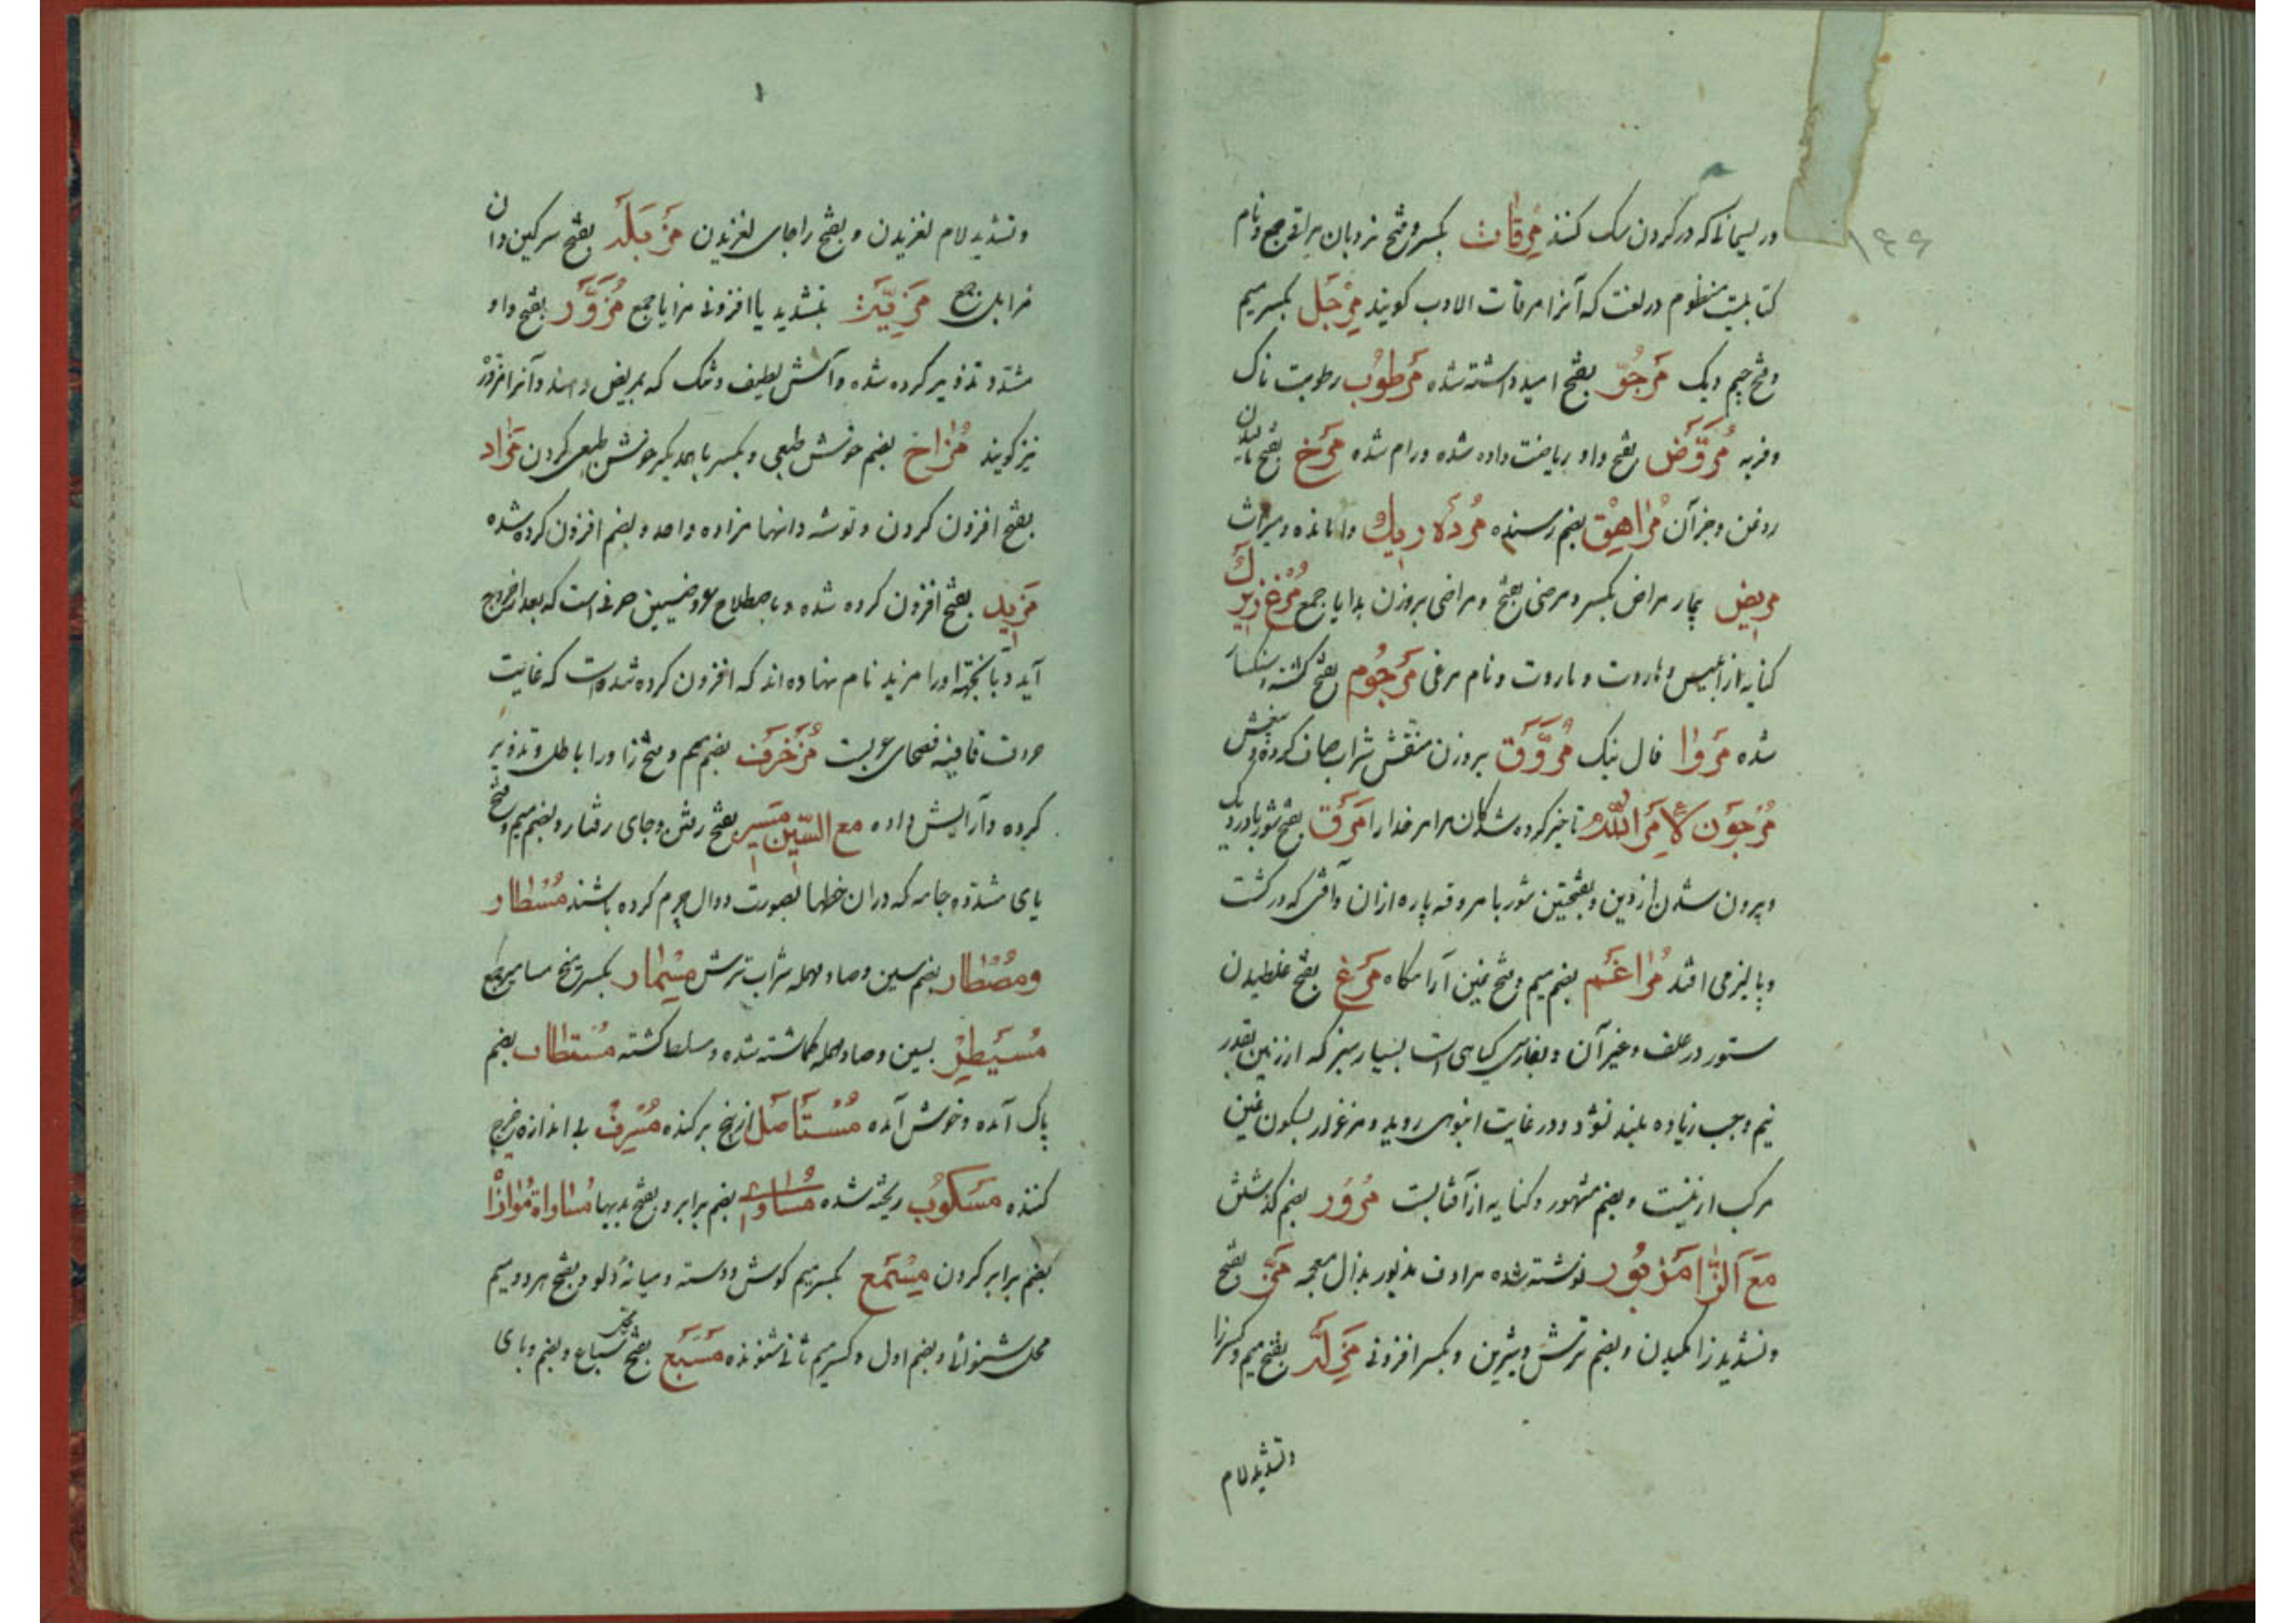 ۱۴۶
وریسمانی که در گردن سگ کنند مرقات بکسر و فتح نردبان مراقی جمع و نام
کتابیست منظوم در لغت که آنرا مرقات الادب کویند مِرْجَل بکسر میم
وفتح جیم دیک مَرجُوّ بفتح امید داشته شده مَرطوُب رطوبت ناک
وفربه مُرَوَّض بفتح واو ریاضت داده شده ورام شده مَرخ بفتح مالیدن
روغن وجز آن مُراهِق بضم رسنده مُرده ریك وامانده ومیراث
مریض بیمار مراض بکسر ومرضی بفتح ومراضی بروزن بدایا جمع مُرغ زیرك
کنایه از ابلیس وهاروت و ماروت و نام مرغی مَرجُوم بفتح کشته وسنکسار
شده مَروٰا فال نیک مُرَوَّق بروزن منقش شراب صاف کرده
مُرجَون لِاَمرِ اللّه تاخیر کرده شدکان مرامر خدا را مَرَق بفتح شوربا در دیک
وبیرون شدن از دین وبفتحتین شوربا مروقه پاره ازان وآفتی که در کشت
وپالیز می افتد مُراغَم بضم میم وفتح غین آرامکاه مَرغ بفتح غلطیدن
ستور در علف وغیر آن وبفارسی کیاهی است بسیار سبز که از زمین بقدر
نیم وجب زیاده بلند نشود ودر غایت انبوهی روید ومرغزار بسکون غین
مرکب ازینست وبضم مشهور وکنایه از آفتابست مُرُور بضم کذشتن
مَعَ الزّا مَزبُور نوشته شده مرادف مذبور بذال معجمه مَزّ بفتح
وتشدید زا مکیدن وبضم ترش وشیرین وبکسر افزونی مَزِلَّه بفتح میم وکسر زا
وتشدید لام
۱
وتشدید لام لغزیدن و بفتح زا جای لغزیدن مَزبَله بفتح سرکین دان
مزابل جمع مَزِیَّة بتشدید یا افزونی مزایا جمع مُزَوَّر بفتح واو
مشدد تذویر کرده شده وآش لطیف وتنک که بمریض دهند وآنرا مزور
نیز کویند مُزٰاح بضم خوش طبعی وبکسر با همدیکر خوش طبعی کردن مَزٰاد
بفتح افزون کردن وتوشه دانها مزاده واحد وبضم افزون کرده شده
مَزید بفتح افزون کرده شده وباصطلاح عروضیین حرفی است که بعد از خروج
آید وبآنجهة اورا مزید نام نهاده اند که افزون کرده شده است که غایت
حروف قافیه فصحای عربست مُزَخرَف بضم میم وفتح زا ورا باطل وتذویر
کرده وآرایش داده مع السّین مَسیر بفتح رفتن وجای رفتار وبضم میم وفتح
یای مشدده جامه که دران خطها بصورت دوال چرم کرده باشند مُسْطار
ومُصْطار بضم سین وصاد مهمله شراب ترش مِسمٰار بکسر میخ مسامیر جمع
مُسَیطِر بسین وصاد مهمله کماشته شده ومسلط کشته مُستطاب بضم
پاک آمده وخوش آمده مُستَأصَل از بیخ برکنده مُسرِف بی اندازه خرج
کننده مَسکوُب ریخته شده مُساوٰی بضم برابر وبفتح بدیها مُساواة مُوازاة
بضم برابر کردن مِسْمَع بکسر میم کوش ودسته ومیانهٔ دلو وبفتح هر دو میم
محل شنوائی وبضم اول وکسر میم ثانی شنونده مَسبَع بفتح محل سباع وبضم وبای